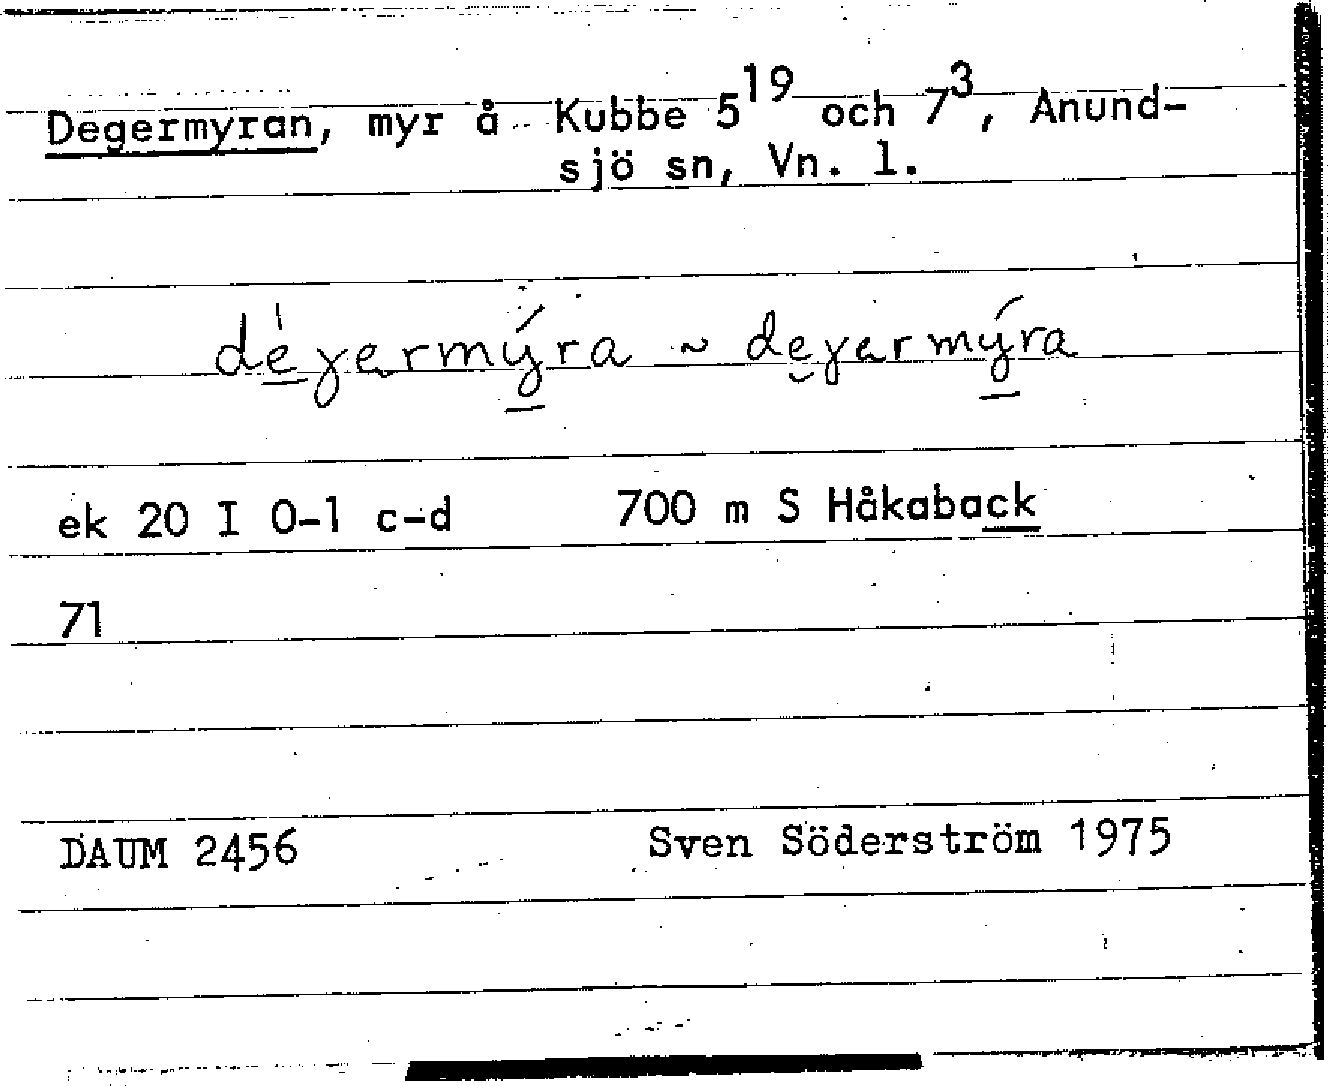 Degermyran, myr å Kubbe 5¹⁹ och 7³, Anund-
sjö sn, Vn. l.
dé̱γermý̱ra ~ de̮γermý̱ra
ek 20 I 0-1 c-d 700 m S Håkaback
71
DAUM 2456 Sven Söderström 1975